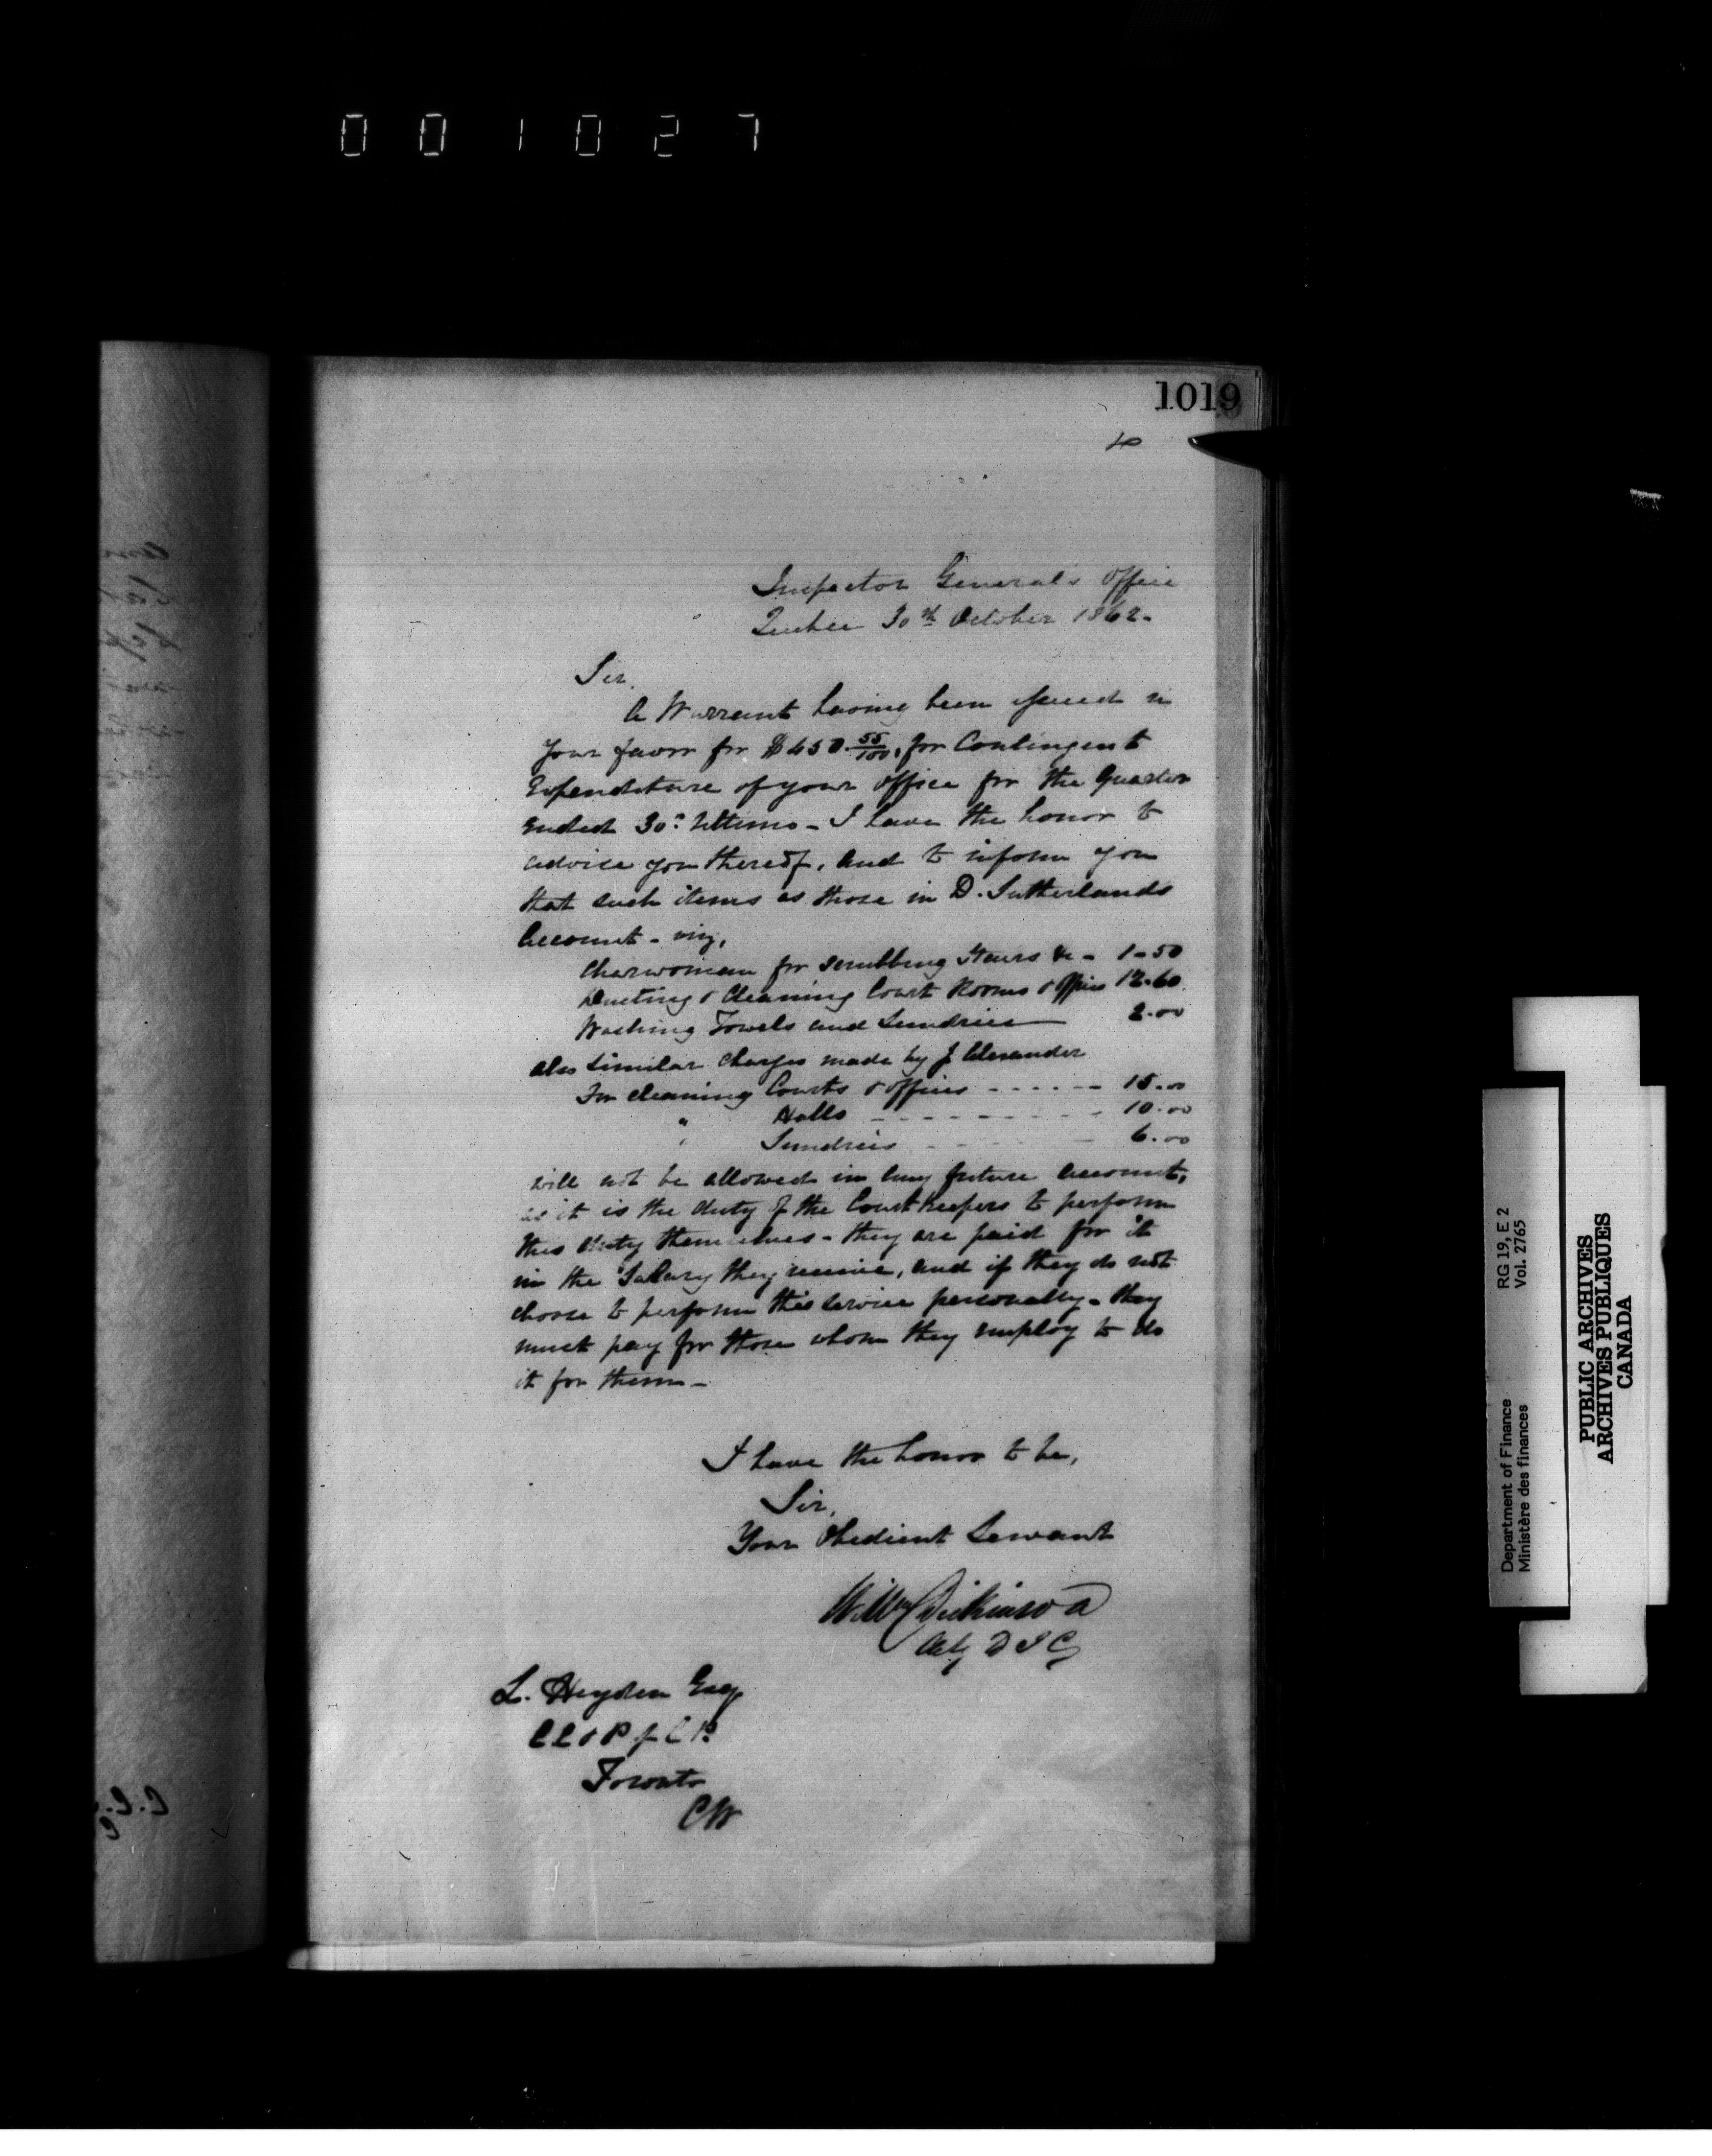 001027
1019
Inspector General's Office
Quebec 30th October 1862.
Sir,
A Warrant having been issued in
your favor for $450.55/100, for Contingent
Expenditure of your office for the Quarter
Ended 30th Ultimo - I have the honor to
advise you thereof, and to inform you
that such items as those in D. Sutherlands
Account - viz,
Charwoman for scrubbing Stairs &c - 1-50
Dusting & Cleaning Court Rooms & Offices 12.60
Washing Towels and Sundries 2.00
also similar charges made by J Alexander
For cleaning Courts & offices - - - - - - 15.00
" Halls - - - - - - - - - 10.00
" Sundries - - - - 6.00
will not be allowed in any future account,
as it is the duty of the Court Keepers to perform
this duty themselves - they are paid for it
in the Salary they receive, and if they do not
choose to perform this service personally - they
must pay for those whom they employ to do
it for them -
I have the honor to be,
Sir,
Your Obedient Servant
Wm Dickinson
Actg D I G
L. Heyden Esq
C C & P of C P.
Toronto
CW
RG 19, E 2
Vol. 2765
Department of Finance
Ministère des finances
PUBLIC ARCHIVES
ARCHIVES PUBLIQUES
CANADA